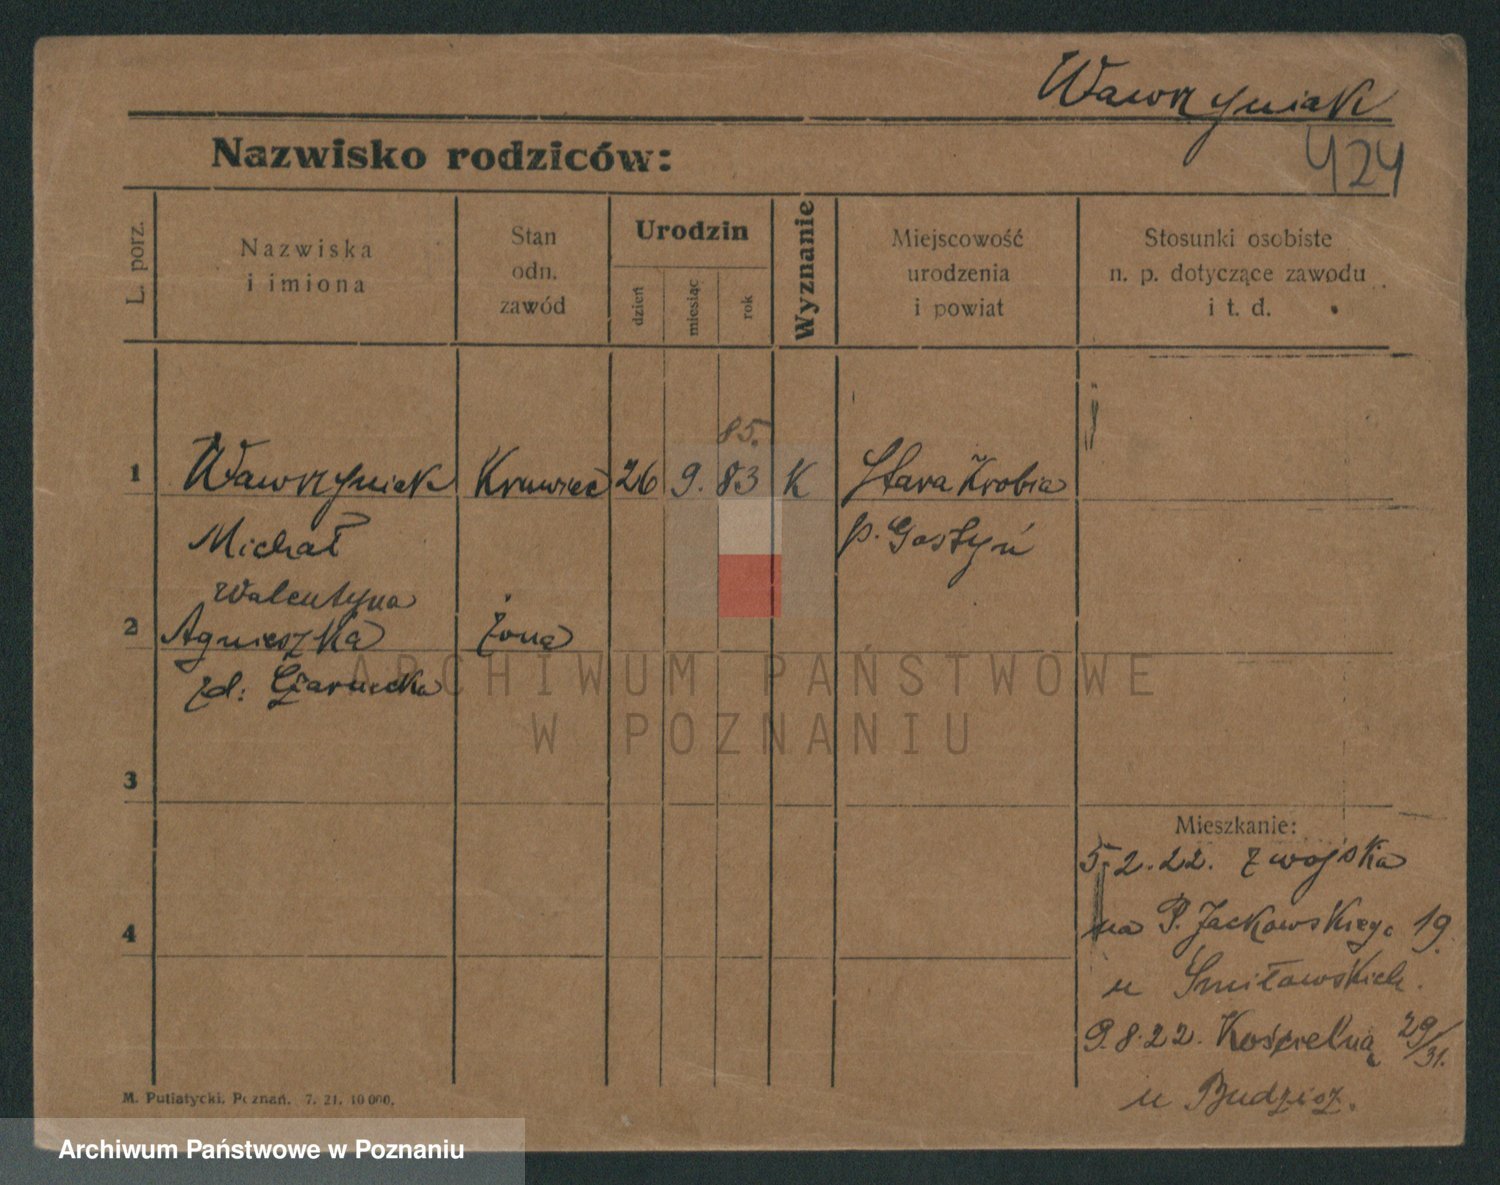 Wawrzyniak
424
Nazwisko rodziców:
L. porz.
Nazwiska
i imiona
Stan
odn.
zawód
Urodzin
dzień
miesiąc
rok
Wyznanie
Miejscowość
urodzenia
i powiat
Stosunki osobiste
n. p. dotyczące zawodu
i t. d.
85.
1 Wawrzyniak Krawiec 26 9. 83 K Stara Krobia
Michał p. Gostyń
Walentyna
2 Agnieszka żona
zd: Czarnecka
ARCHIWUM PAŃSTWOWE
W POZNANIU
3
Mieszkanie:
5.2.22. z wojska
4 na P. Jackowskiego 19
u Śmiłowskich.
9.8.22. Kościelną 29/31.
u Budzisz.
M. Putiatycki, Poznań. 7. 21. 10 000.
Archiwum Państwowe w Poznaniu